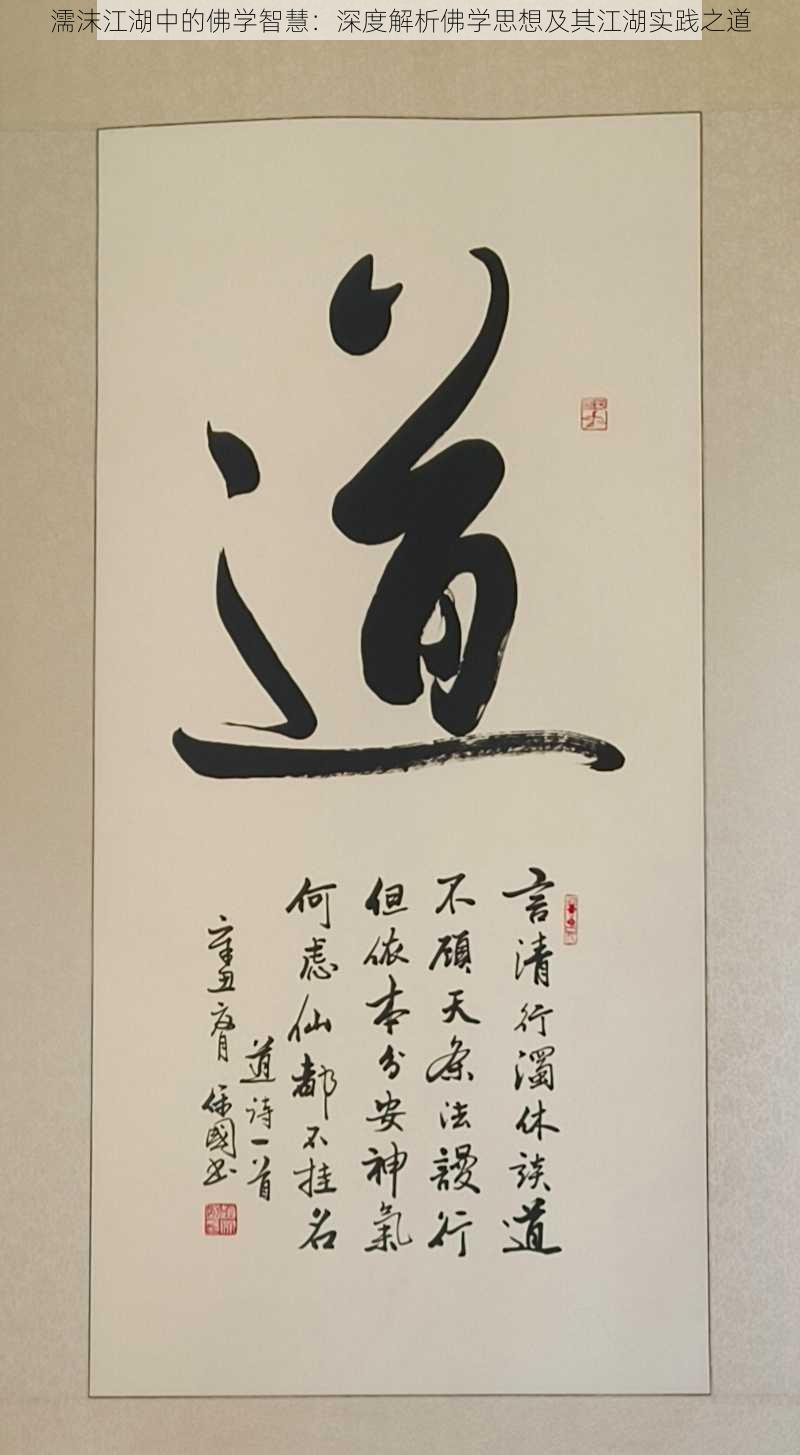 濡沫江湖中的佛学智慧：深度解析佛学思想及其江湖实践之道
道
言清行濁休談道
不顧天条法謾行
但依本分安神氣
何慮仙都不挂名
道诗一首
保國书